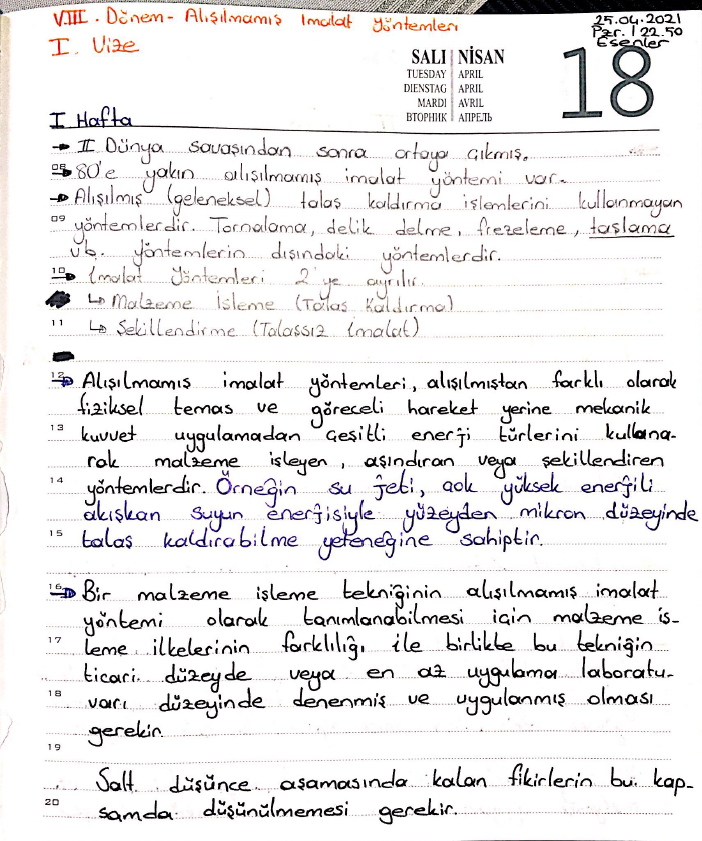 VIII. Dönem - Alışılmamış İmalat Yöntemleri
25.04.2021
Pzr. | 22.50
Esenler
I. Vize
SALI | NİSAN
TUESDAY | APRIL
DIENSTAG | APRIL
MARDI | AVRIL
ВТОРНИК | АПРЕЛЬ
18
I Hafta
→ II Dünya savaşından sonra ortaya çıkmış.
08 → 80'e yakın alışılmamış imalat yöntemi var.
→ Alışılmış (geleneksel) talaş kaldırma işlemlerini kullanmayan
09 yöntemlerdir. Tornalama, delik delme, frezeleme, taşlama
vb. yöntemlerin dışındaki yöntemlerdir.
10 → İmalat Yöntemleri 2'ye ayrılır.
↳ Malzeme İşleme (Talaş Kaldırma)
11 ↳ Şekillendirme (Talaşsız İmalat)
12 → Alışılmamış imalat yöntemleri, alışılmıştan farklı olarak
fiziksel temas ve göreceli hareket yerine mekanik
13 kuvvet uygulamadan çeşitli enerji türlerini kullana-
rak malzeme işleyen, aşındıran veya şekillendiren
14 yöntemlerdir. Örneğin su jeti, çok yüksek enerjili
akışkan suyun enerjisiyle yüzeyden mikron düzeyinde
15 talaş kaldırabilme yeteneğine sahiptir.
16 → Bir malzeme işleme tekniğinin alışılmamış imalat
yöntemi olarak tanımlanabilmesi için malzeme iş-
17 leme ilkelerinin farklılığı ile birlikte bu tekniğin
ticari düzeyde veya en az uygulama laboratu-
18 varı düzeyinde denenmiş ve uygulanmış olması
gerekir.
19
Salt düşünce aşamasında kalan fikirlerin bu kap-
20 samda düşünülmemesi gerekir.